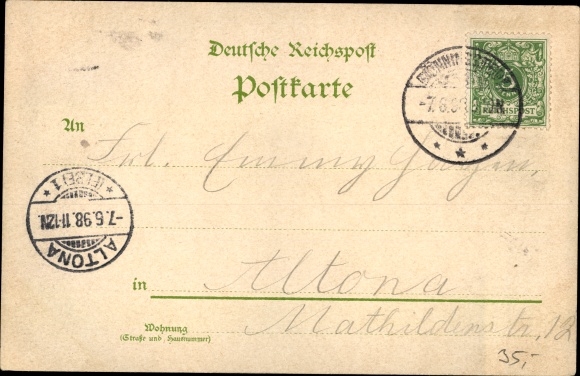 Deutsche Reichspost
Postkarte
REICHSPOST
-7.6.98
An
Frl. Emmy
ALTONA
-7.6.98.11-12N.
*(ELBE)1*
in
Altona
Mathildenstr, 12
Wohnung
(Straße und Hausnummer)
35,-